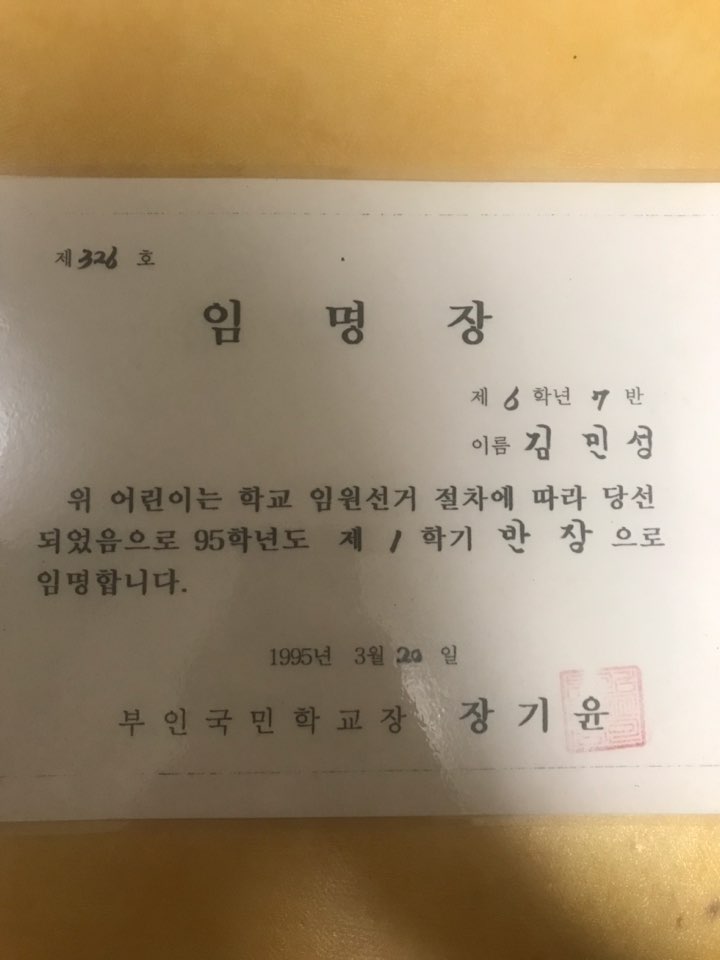 제 326 호
임 명 장
제 6 학년 7 반
이름 김 민 성
위 어린이는 학교 임원선거 절차에 따라 당선
되었음으로 95학년도 제 1 학기 반 장 으로
임명합니다.
1995년 3월 20 일
부인국민학교장 장기윤